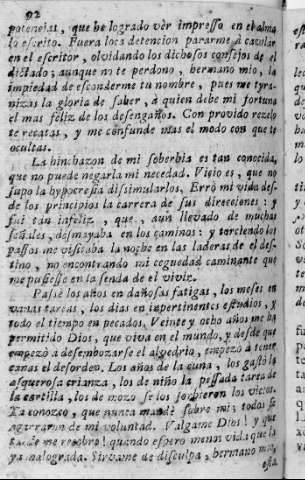 92
potencias, que he logrado vèr impresso en el alma
lo escrito. Fuera loca detencion pararme à cavilar
en el escritor, olvidando los dichosos consejos de el
dictado; aunque no te perdono, hermano mio, la
impiedad de esconderme tu nombre, pues me tyra-
nizas la gloria de saber, à quien debe mi fortuna
el mas feliz de los desengaños. Con provido rezelo
te recatas, y me confunde mas el modo con que te
ocultas.
La hinchazon de mi soberbia es tan conocida,
que no puede negarla mi necedad. Vicio es, que no
supo la hypocresia dissimularlos. Errò mi vida des-
de los principios la carrera de sus direcciones: y
fui tan infeliz, que, aun llevado de muchas
señales, desmayaba en los caminos: y torciendo los
passos me visitaba la noche en las laderas de el des-
tino, no encontrando mi ceguedad caminante que
me pusiesse en la senda de el vivir.
Passè los años en dañosas fatigas, los meses en
varias tareas, los dias en impertinentes estudios, y
todo el tiempo en pecados. Veinte y ocho años me ha
permitido Dios, que viva en el mundo, y desde que
empezò à desembozarse el alvedrio, empezò à tener
canas el desorden. Los años de la cuna, los gastò la
asquerosa crianza, los de niño la pessada tarea de
la cartilla, los de mozo se los sorbieron los vicios.
Ya conozco, que nunca mandè sobre mi; todos se
agarraron de mi voluntad. Valgame Dios! y que
tarde me recobro! quando espero menos vida que la
ya malograda. Sirvame de disculpa, hermano mio,
esta